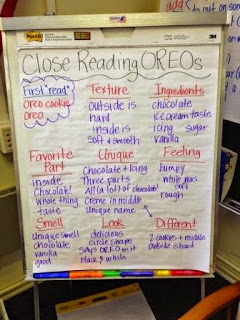 Post-it
3M
Close Reading OREOs
First "read"
oreo cookie
oreo
Texture
outside is
hard
inside is
soft & smooth
Ingredients
chocolate
ice cream taste
icing sugar
vanilla
Favorite
Part
inside
Chocolat!
Whole thing
taste
Unique
Chocolate + icing
Three parts
All (a lot) of chocolate!
Creme in middle
Unique name
Feeling
bumpy
white was
soft
rough
Smell
Unique smell
chocolate
vanilla
good
Look
delicious
circle shape
says OREO on it
black & white
Different
2 cookies & middle
outside is hard
add